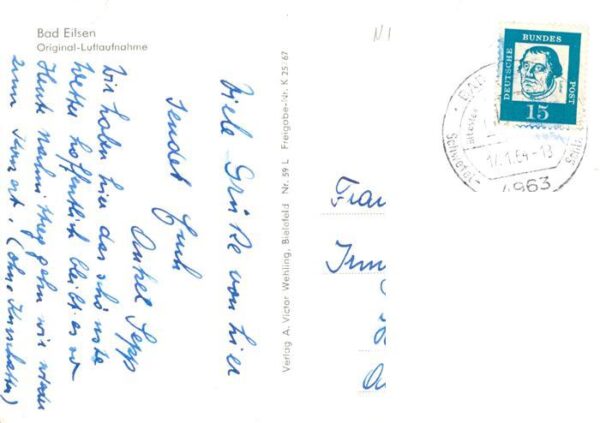 Bad Eilsen
Original-Luftaufnahme
Viele Grüße von hier
sendet Euch
Onkel Sepp
Wir haben hier das schönste
Wetter hoffentlich bleibt es so
Heute nachmittag gehn wir wieder
zum Konzert. (ohne
Verlag A. Victor Wehling, Bielefeld Nr. 59 L Freigabe-Nr. K 25/67
DEUTSCHE BUNDESPOST
15
BAD
Schwefel-
4963
Frau